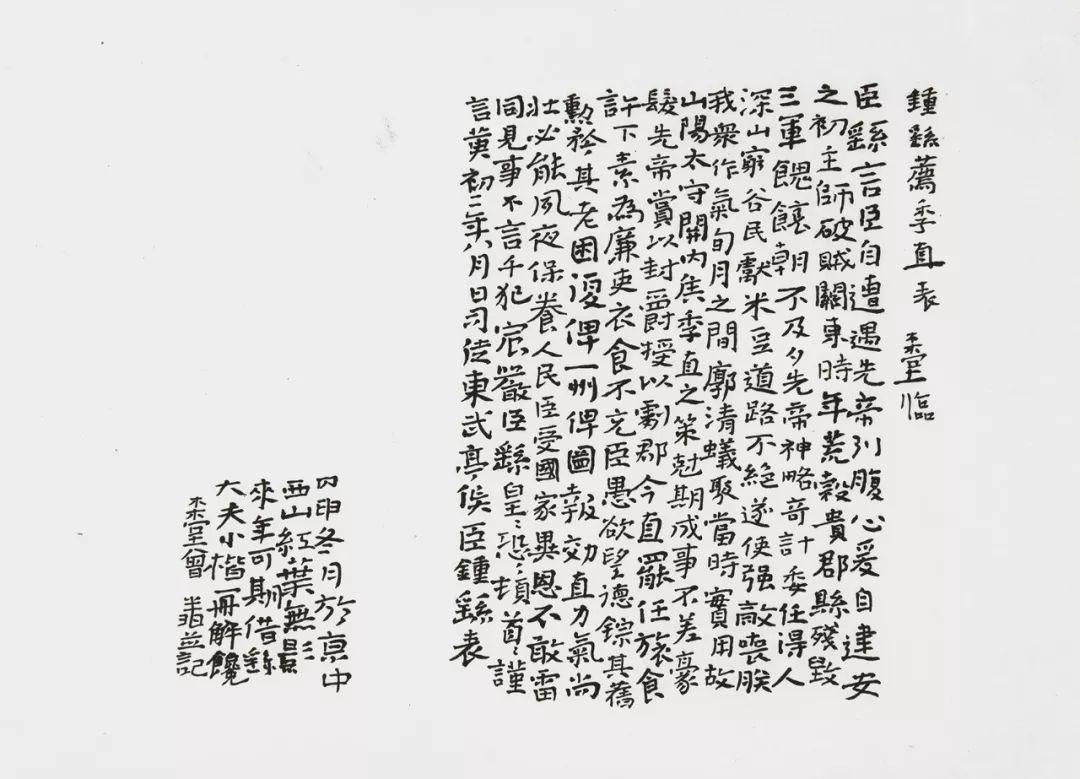 鍾繇薦季直表 柰堂臨
臣繇言臣自遭遇先帝列腹心爰自建安
之初王師破賊關東時年荒穀貴郡縣殘毀
三軍餽饟朝不及夕先帝神略奇計委任得人
深山窮谷民獻米豆道路不絕遂使强敵喪膽
我衆作氣旬月之間廓清蟻聚當時實用故
山陽太守關內侯季直之策尅期成事不差豪
髮先帝賞以封爵授以劇郡今直罷任旅食
許下素為廉吏衣食不充臣愚欲望德錄其舊
勲矜其老困復俾一州俾圖報効直力氣尚
壯必能夙夜保養人民臣受國家異恩不敢雷
同見事不言干犯宸嚴臣繇皇〻恐〻頓首〻謹
言黄初二年八月日司徒東武亭侯臣鍾繇表
丙申冬月於京中
西山紅葉無影
來年可期借繇
大夫小楷一冊解饞
柰堂曾 並記